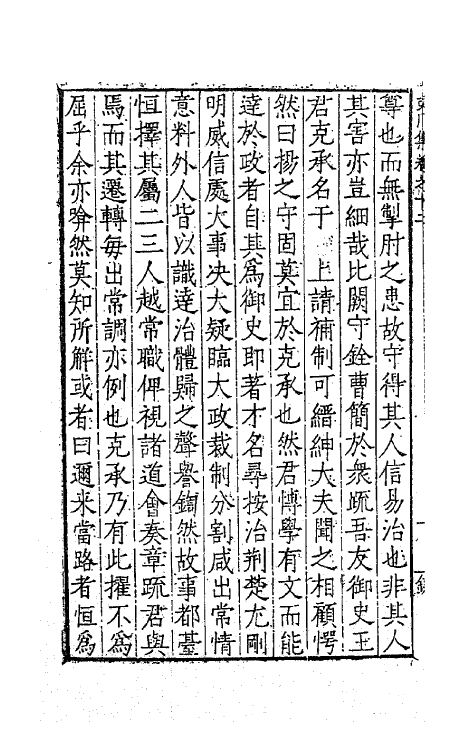 尊也而無掣肘之患故守得其人信易治也非其人
其害亦豈細哉比闕守銓曹簡於衆疏吾友御史王
君克承名于　上請補制可縉紳大夫聞之相顧愕
然曰揚之守固莫宜於克承也然君博學有文而能
達於政者自其為御史即著才名尋按治荆楚尤剛
明威信處大事决大疑臨大政裁制分割咸出常情
意料外人皆以識達治體歸之聲譽鍧然故事都臺
恒擇其屬二三人越常職俾視諸道會奏章疏君與
焉而其遷轉每出常調亦例也克承乃有此擢不為
屈乎余亦暣然莫知所解或者曰邇来當路者恒為